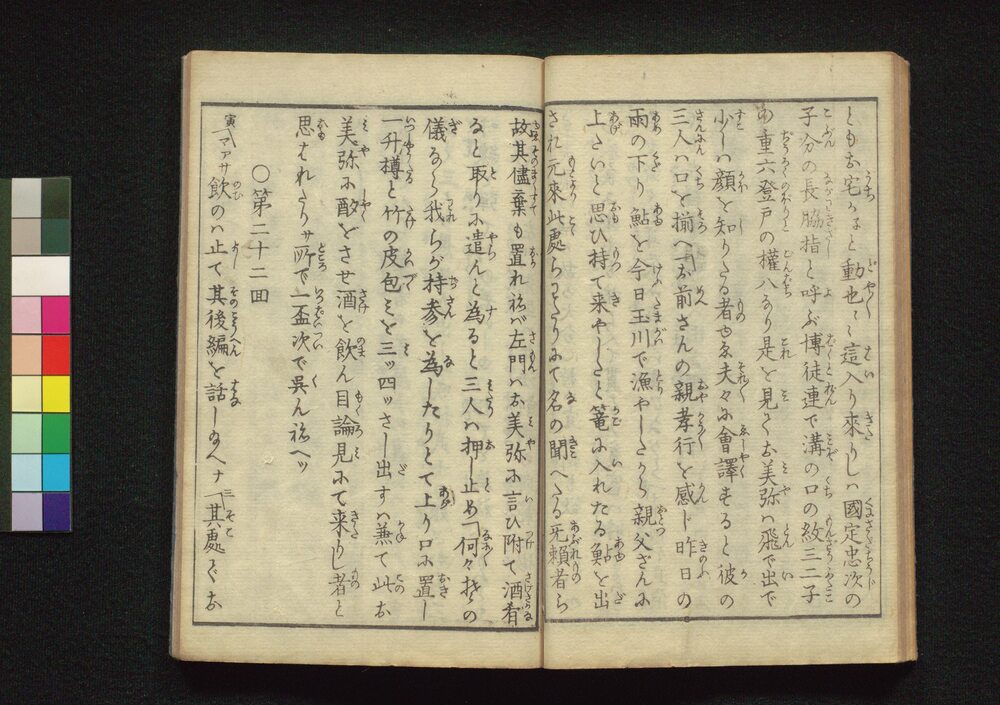 ともお宅かと動也〳〵這入り來りしハ國定忠次の
子分の長脇指と呼ぶ博徒連で溝の口の紋三二子
の重六登戸の權八なり是を見てお美弥ハ飛で出で
少しハ顔を知りたる者ゆゑ夫々に會譯すると彼の
三人ハ口を揃へお前さんの親孝行を感じ昨日の
雨の下り鮎を今日玉川で漁やしたから親父さんに
上たいと思ひ持て来やしたと篭に入れたる鮎を出
され元来此處らあたりにて名の聞へたる无頼者ら
故其儘棄も置れねバ左門ハお美弥に言ひ附て酒肴
ると取りに遣んと為ると三人ハ押し止め「何々其の
儀なら我らが持参を為したりとて上り口に置し
一升樽と竹の皮包ミを三ッ四ッさし出すハ兼て此お
美弥に酌をさせ酒を飲ん目論見にて来りし者と
思はれたりサ所で一盃次で呉んねへッ
〇第二十二回
寅「マアサ飲のハ止て其後編を話しねへナ 三「其處でお